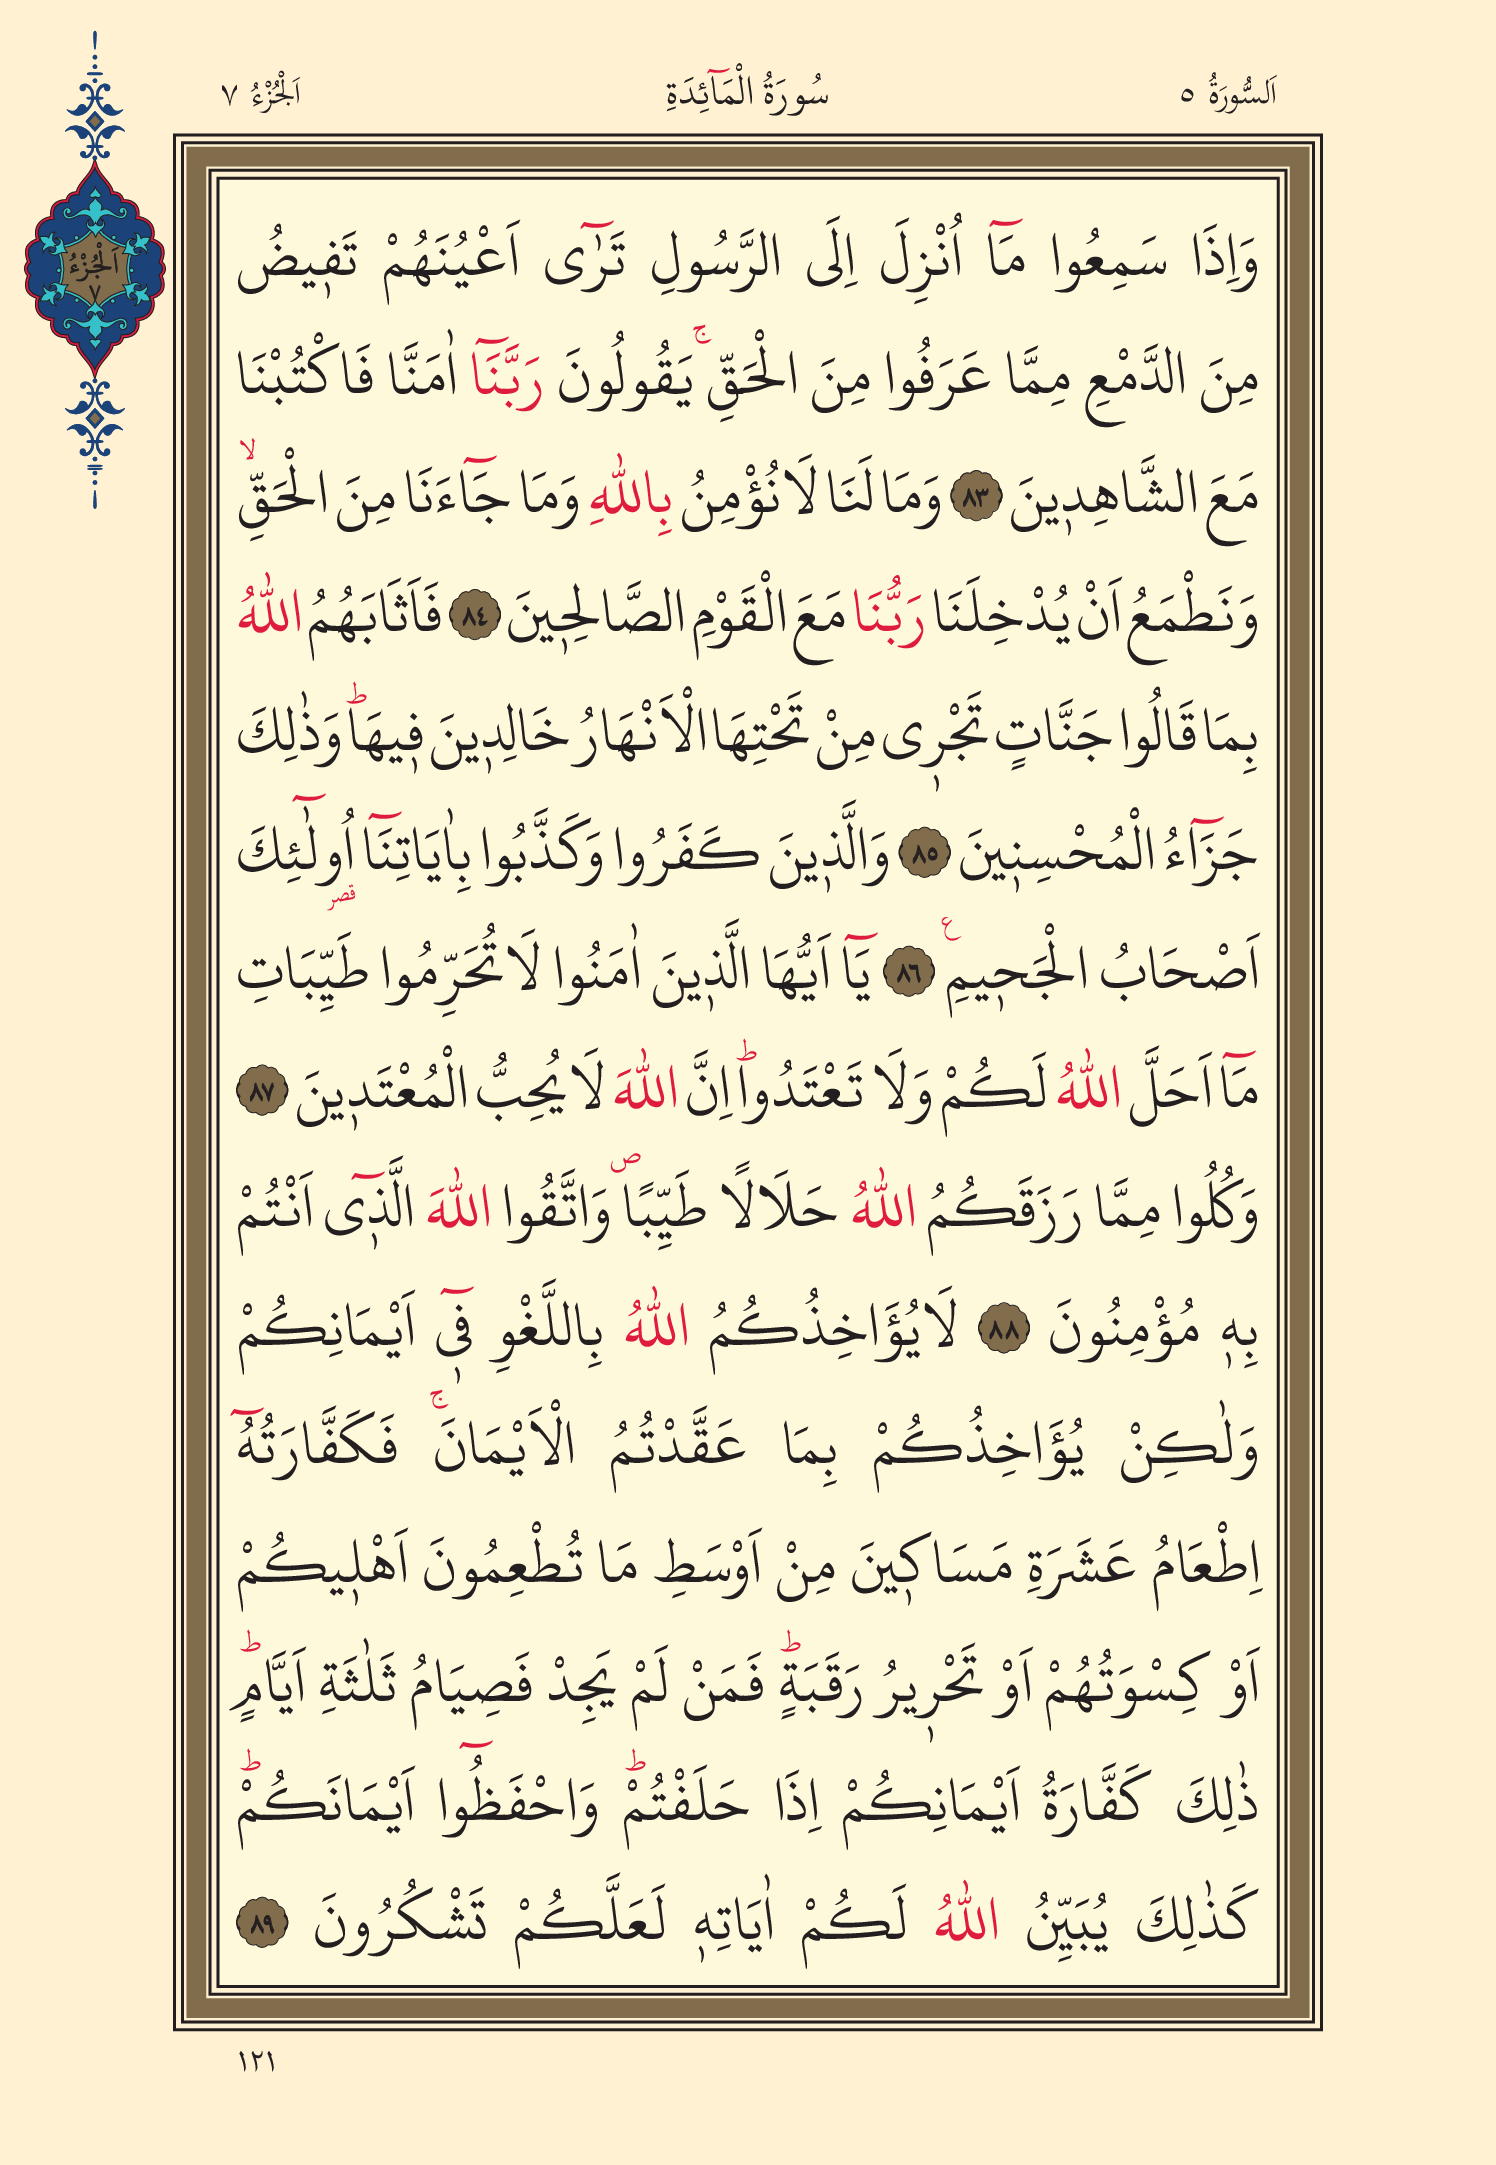 اَلسُّورَةُ ٥ سُورَةُ الْمَٓائِدَةِ اَلْجُزْءُ ٧
اَلْجُزْءُ
٧
وَاِذَا سَمِعُوا مَٓا اُنْزِلَ اِلَى الرَّسُولِ تَرٰٓى اَعْيُنَهُمْ تَفٖيضُ
مِنَ الدَّمْعِ مِمَّا عَرَفُوا مِنَ الْحَقِّۚ يَقُولُونَ رَبَّنَٓا اٰمَنَّا فَاكْتُبْنَا
مَعَ الشَّاهِدٖينَ ﴿٨٣﴾ وَمَا لَنَا لَا نُؤْمِنُ بِاللّٰهِ وَمَا جَٓاءَنَا مِنَ الْحَقِّۙ
وَنَطْمَعُ اَنْ يُدْخِلَنَا رَبُّنَا مَعَ الْقَوْمِ الصَّالِحٖينَ ﴿٨٤﴾ فَاَثَابَهُمُ اللّٰهُ
بِمَا قَالُوا جَنَّاتٍ تَجْرٖى مِنْ تَحْتِهَا الْاَنْهَارُ خَالِدٖينَ فٖيهَاؕ وَذٰلِكَ
جَزَٓاءُ الْمُحْسِنٖينَ ﴿٨٥﴾ وَالَّذٖينَ كَفَرُوا وَكَذَّبُوا بِاٰيَاتِنَٓا اُو۬لٰٓئِكَ
قصر
اَصْحَابُ الْجَحٖيمِ ع ﴿٨٦﴾ يَٓا اَيُّهَا الَّذٖينَ اٰمَنُوا لَا تُحَرِّمُوا طَيِّبَاتِ
مَٓا اَحَلَّ اللّٰهُ لَكُمْ وَلَا تَعْتَدُواؕ اِنَّ اللّٰهَ لَا يُحِبُّ الْمُعْتَدٖينَ ﴿٨٧﴾
وَكُلُوا مِمَّا رَزَقَكُمُ اللّٰهُ حَلَالًا طَيِّبًا ص وَاتَّقُوا اللّٰهَ الَّذٖٓى اَنْتُمْ
بِهٖ مُؤْمِنُونَ ﴿٨٨﴾ لَا يُؤَاخِذُكُمُ اللّٰهُ بِاللَّغْوِ فٖٓى اَيْمَانِكُمْ
وَلٰكِنْ يُؤَاخِذُكُمْ بِمَا عَقَّدْتُمُ الْاَيْمَانَۚ فَكَفَّارَتُهُٓ
اِطْعَامُ عَشَرَةِ مَسَاكٖينَ مِنْ اَوْسَطِ مَا تُطْعِمُونَ اَهْلٖيكُمْ
اَوْ كِسْوَتُهُمْ اَوْ تَحْرٖيرُ رَقَبَةٍؕ فَمَنْ لَمْ يَجِدْ فَصِيَامُ ثَلٰثَةِ اَيَّامٍؕ
ذٰلِكَ كَفَّارَةُ اَيْمَانِكُمْ اِذَا حَلَفْتُمْؕ وَاحْفَظُٓوا اَيْمَانَكُمْؕ
كَذٰلِكَ يُبَيِّنُ اللّٰهُ لَكُمْ اٰيَاتِهٖ لَعَلَّكُمْ تَشْكُرُونَ ﴿٨٩﴾
١٢١